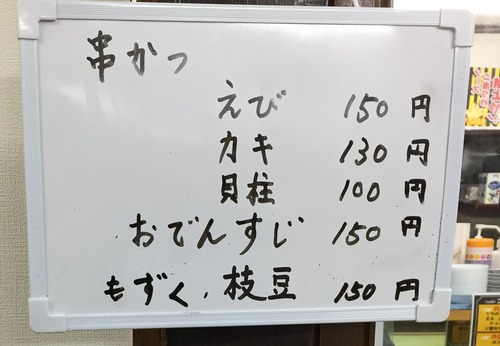 串かつ
えび 150円
カキ 130円
貝柱 100円
おでんすじ 150円
もずく、枝豆 150円